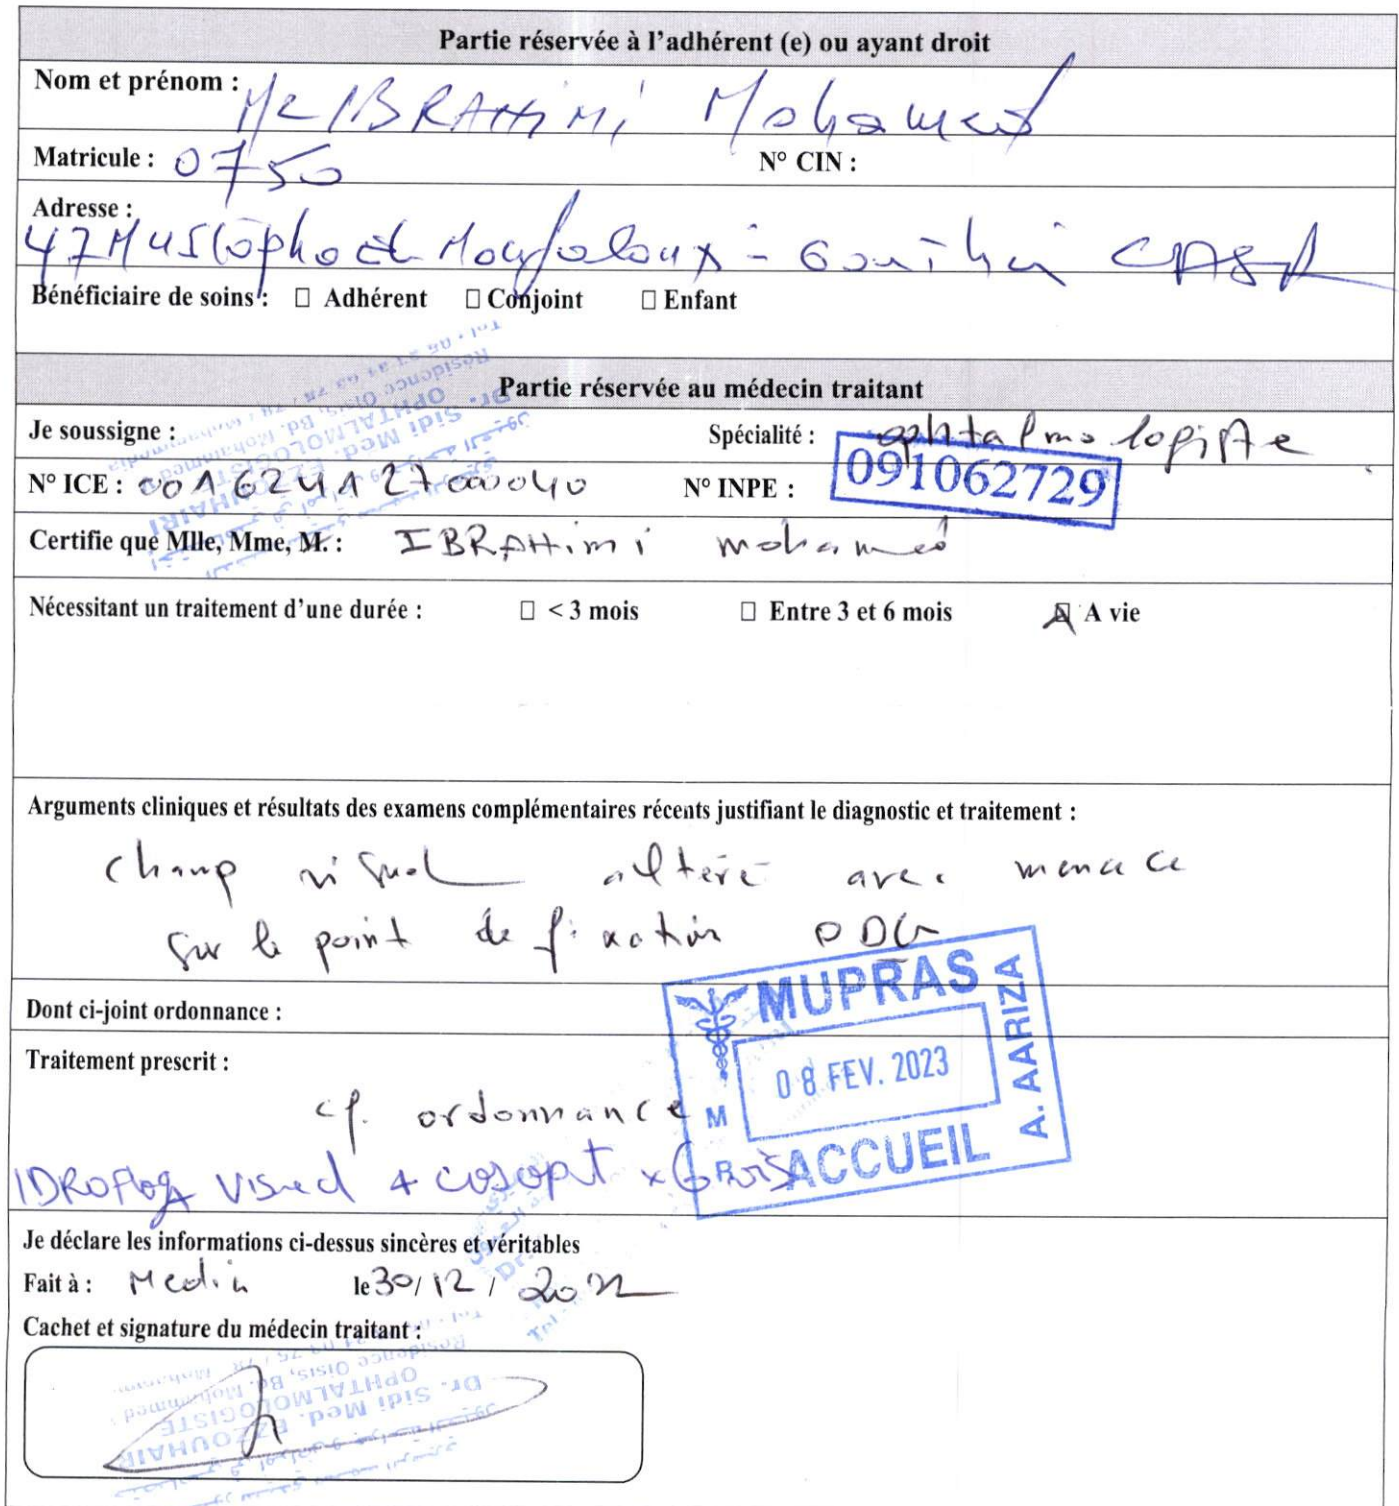 Partie réservée à l'adhérent (e) ou ayant droit
Nom et prénom : Mr IBRAHiMi Mohamed
Matricule : 0750 N° CIN :
Adresse :
47 Mustapha el CASA
Bénéficiaire de soins : □ Adhérent □ Conjoint □ Enfant
Partie réservée au médecin traitant
Je soussigne : Spécialité : ophtalmologiste
N° ICE : 001624127000040 N° INPE : 091062729
Certifie que Mlle, Mme, M. : IBRAHimi mohamed
Nécessitant un traitement d'une durée : □ < 3 mois □ Entre 3 et 6 mois ☒ A vie
Arguments cliniques et résultats des examens complémentaires récents justifiant le diagnostic et traitement :
champ visuel altéré avec menace
sur le point de fixation ODG
MUPRAS
Dont ci-joint ordonnance :
08 FEV. 2023
A. AARIZA
Traitement prescrit :
cf. ordonnance
ACCUEIL
cosopt
Je déclare les informations ci-dessus sincères et véritables
Fait à : le 30/12/2022
Cachet et signature du médecin traitant :
Dr. Sidi Med. EZZOUHAIRI
OPHTALMOLOGISTE